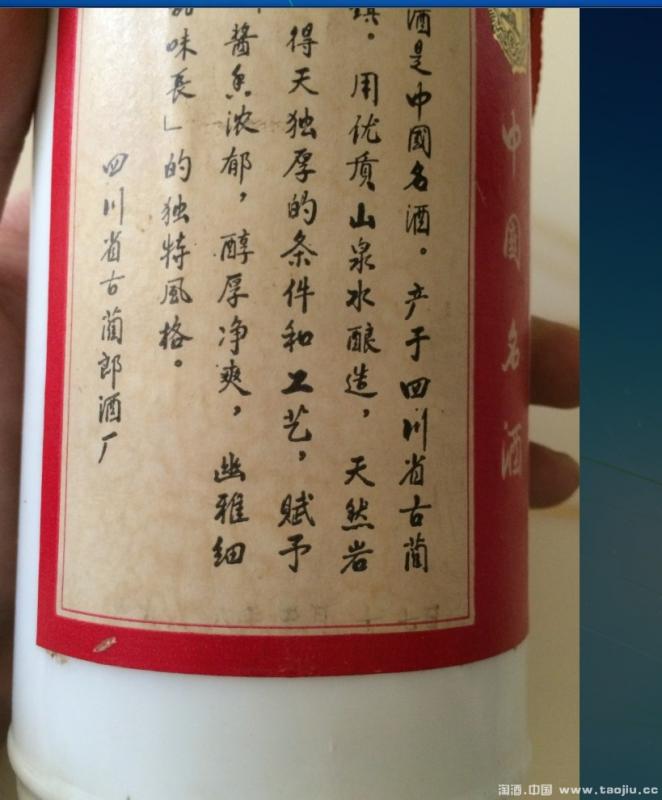 中國名酒
酒是中國名酒。产于四川省古蔺
。用优质山泉水酿造，天然岩
得天独厚的条件和工艺，赋予
醬香浓郁，醇厚净爽，幽雅细
味長」的独特風格。
四川省古蔺郎酒厂
淘酒.中国 www.taojiu.cc